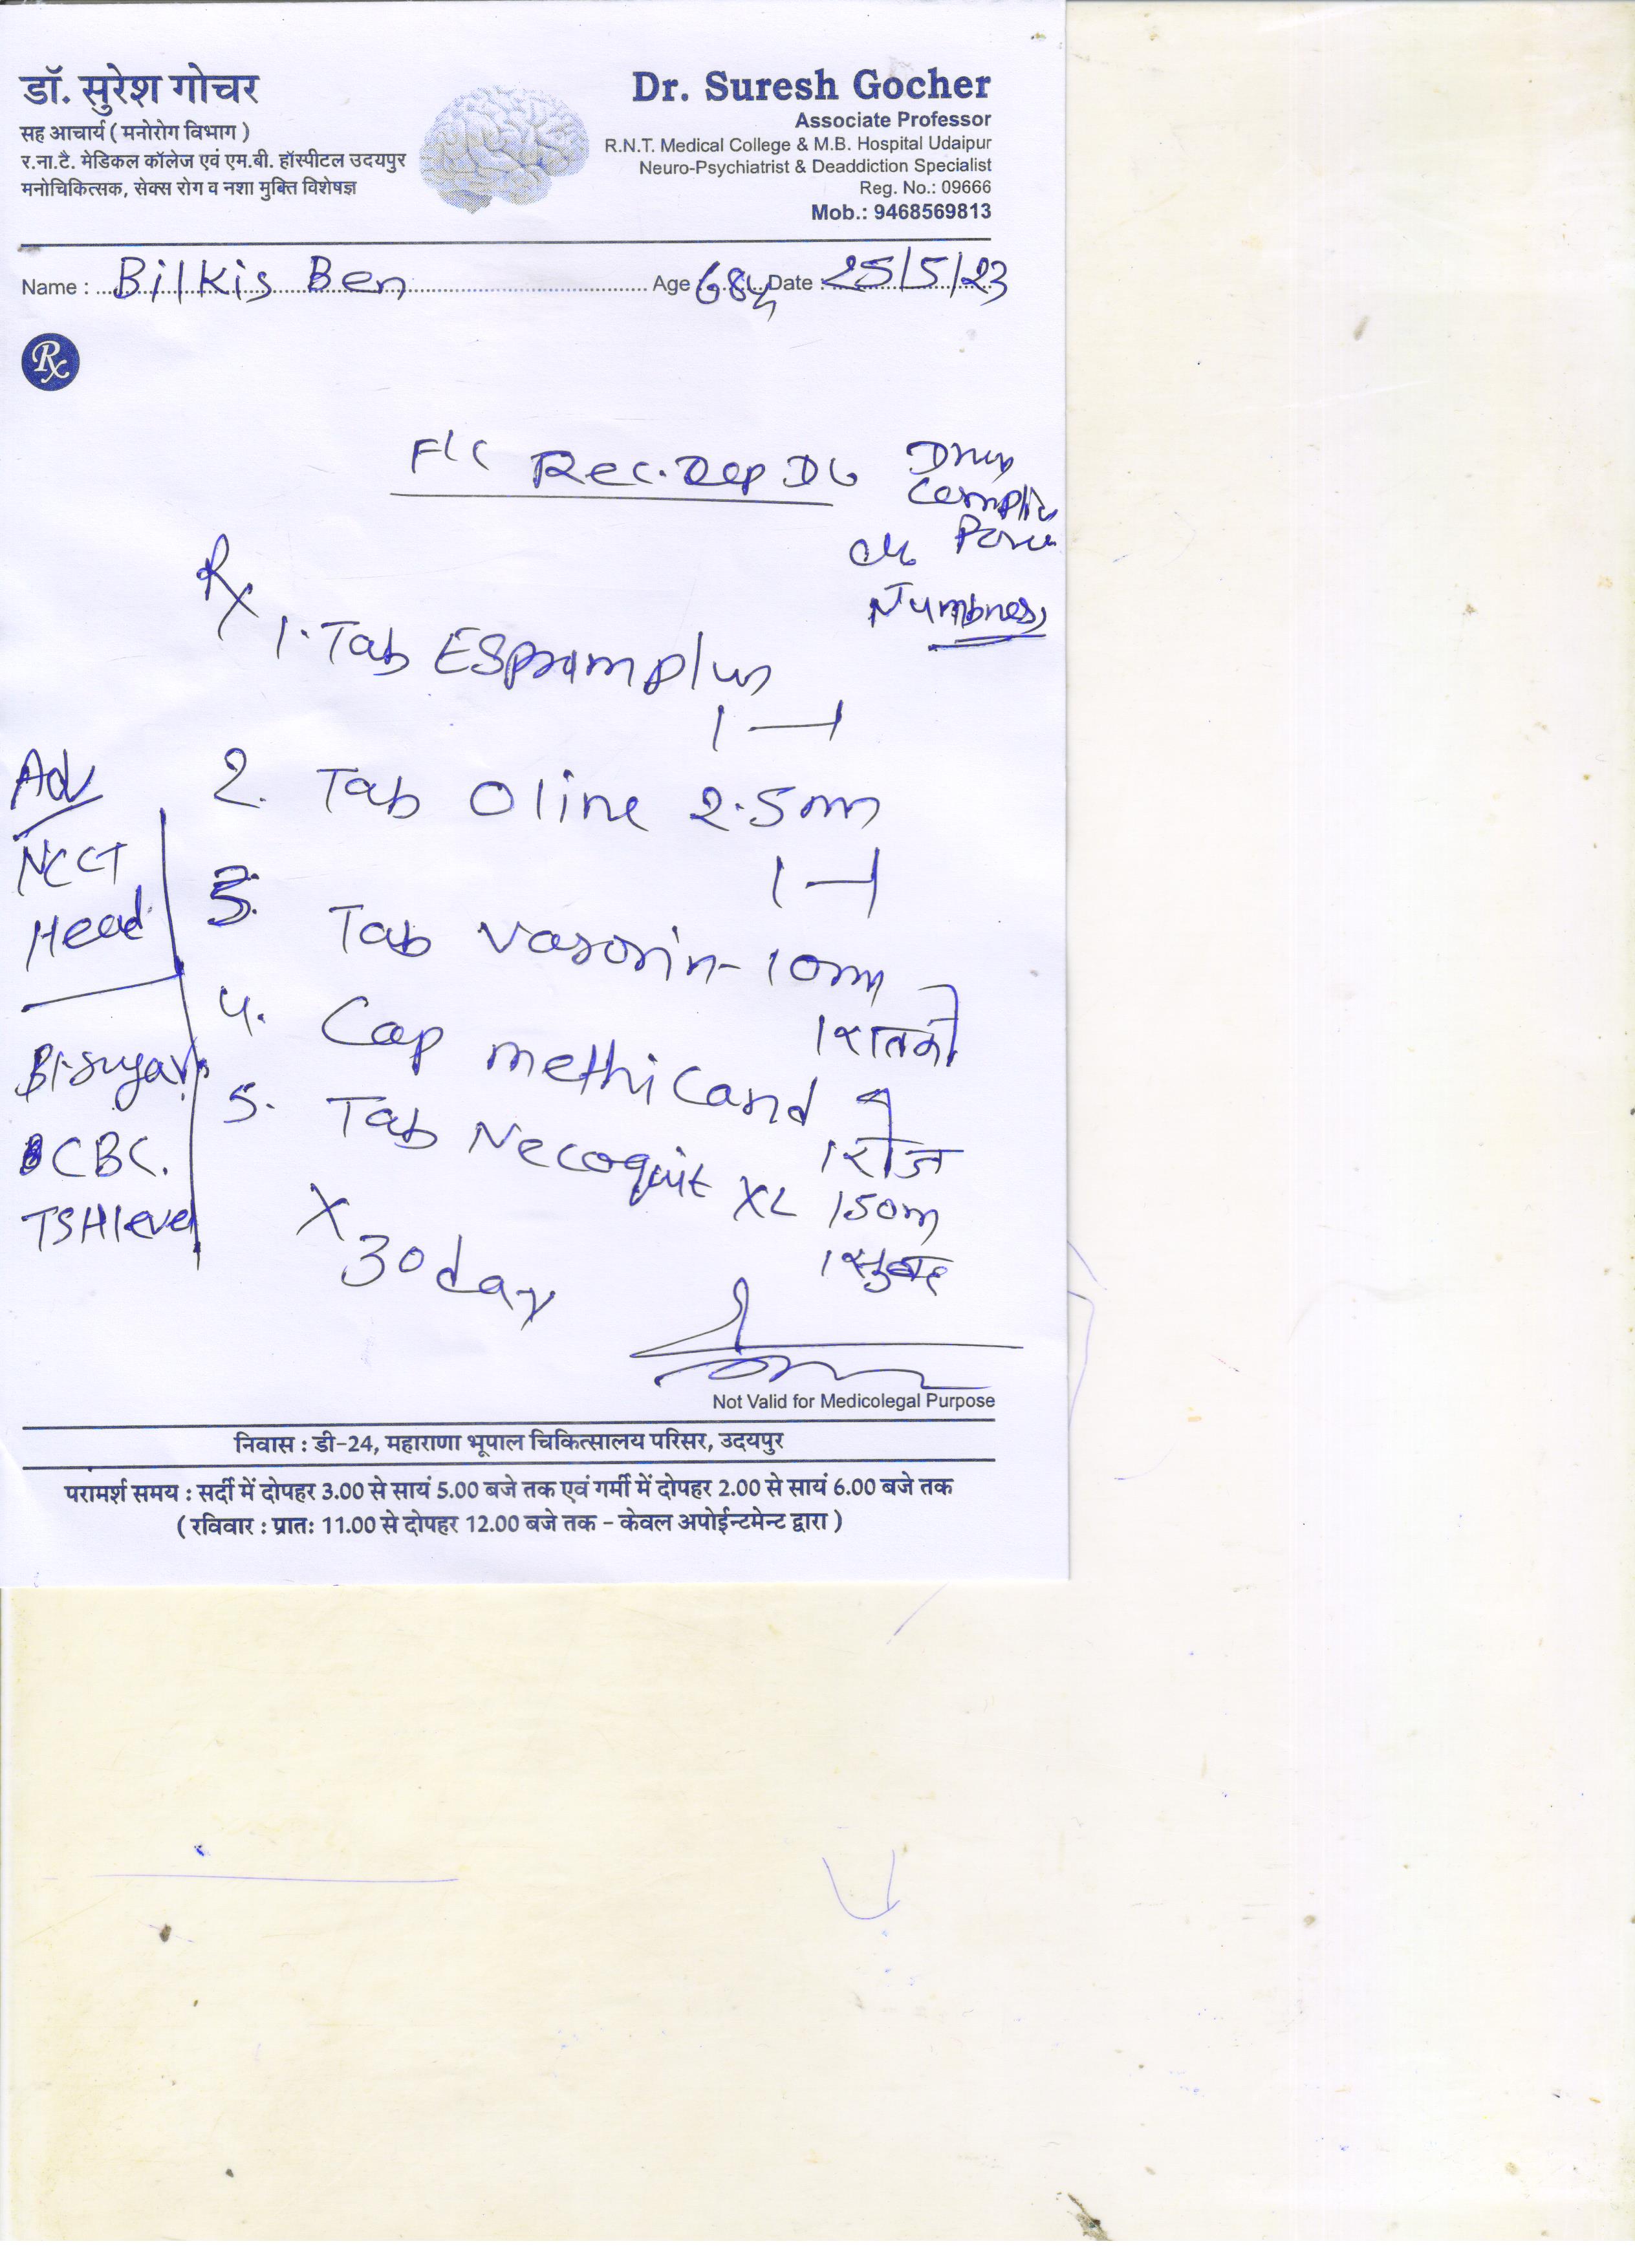 डॉ. सुरेश गोचर
सह आचार्य ( मनोरोग विभाग )
र.ना.टै. मेडिकल कॉलेज एवं एम.बी. हॉस्पीटल उदयपुर
मनोचिकित्सक, सेक्स रोग व नशा मुक्ति विशेषज्ञ
Dr. Suresh Gocher
Associate Professor
R.N.T. Medical College & M.B. Hospital Udaipur
Neuro-Psychiatrist & Deaddiction Specialist
Reg. No.: 09666
Mob.: 9468569813
Name : Bilkis Ben Age 68y Date : 25/5/23
Rx
Rec. Dep
Numbness
Rx
1. Tab Espram plus
1 — 1
2. Tab Oline 2.5m
1 — 1
3. Tab
10m
1 रात को
4. Cap methicand
1 रोज
5. Tab XL 150m
1 सुबह
X 30 day
Adv
NCCT
Head
Bl. sugar
CBC.
TSH level
Not Valid for Medicolegal Purpose
निवास : डी-24, महाराणा भूपाल चिकित्सालय परिसर, उदयपुर
परामर्श समय : सर्दी में दोपहर 3.00 से सायं 5.00 बजे तक एवं गर्मी में दोपहर 2.00 से सायं 6.00 बजे तक
( रविवार : प्रातः 11.00 से दोपहर 12.00 बजे तक - केवल अपोईन्टमेन्ट द्वारा )